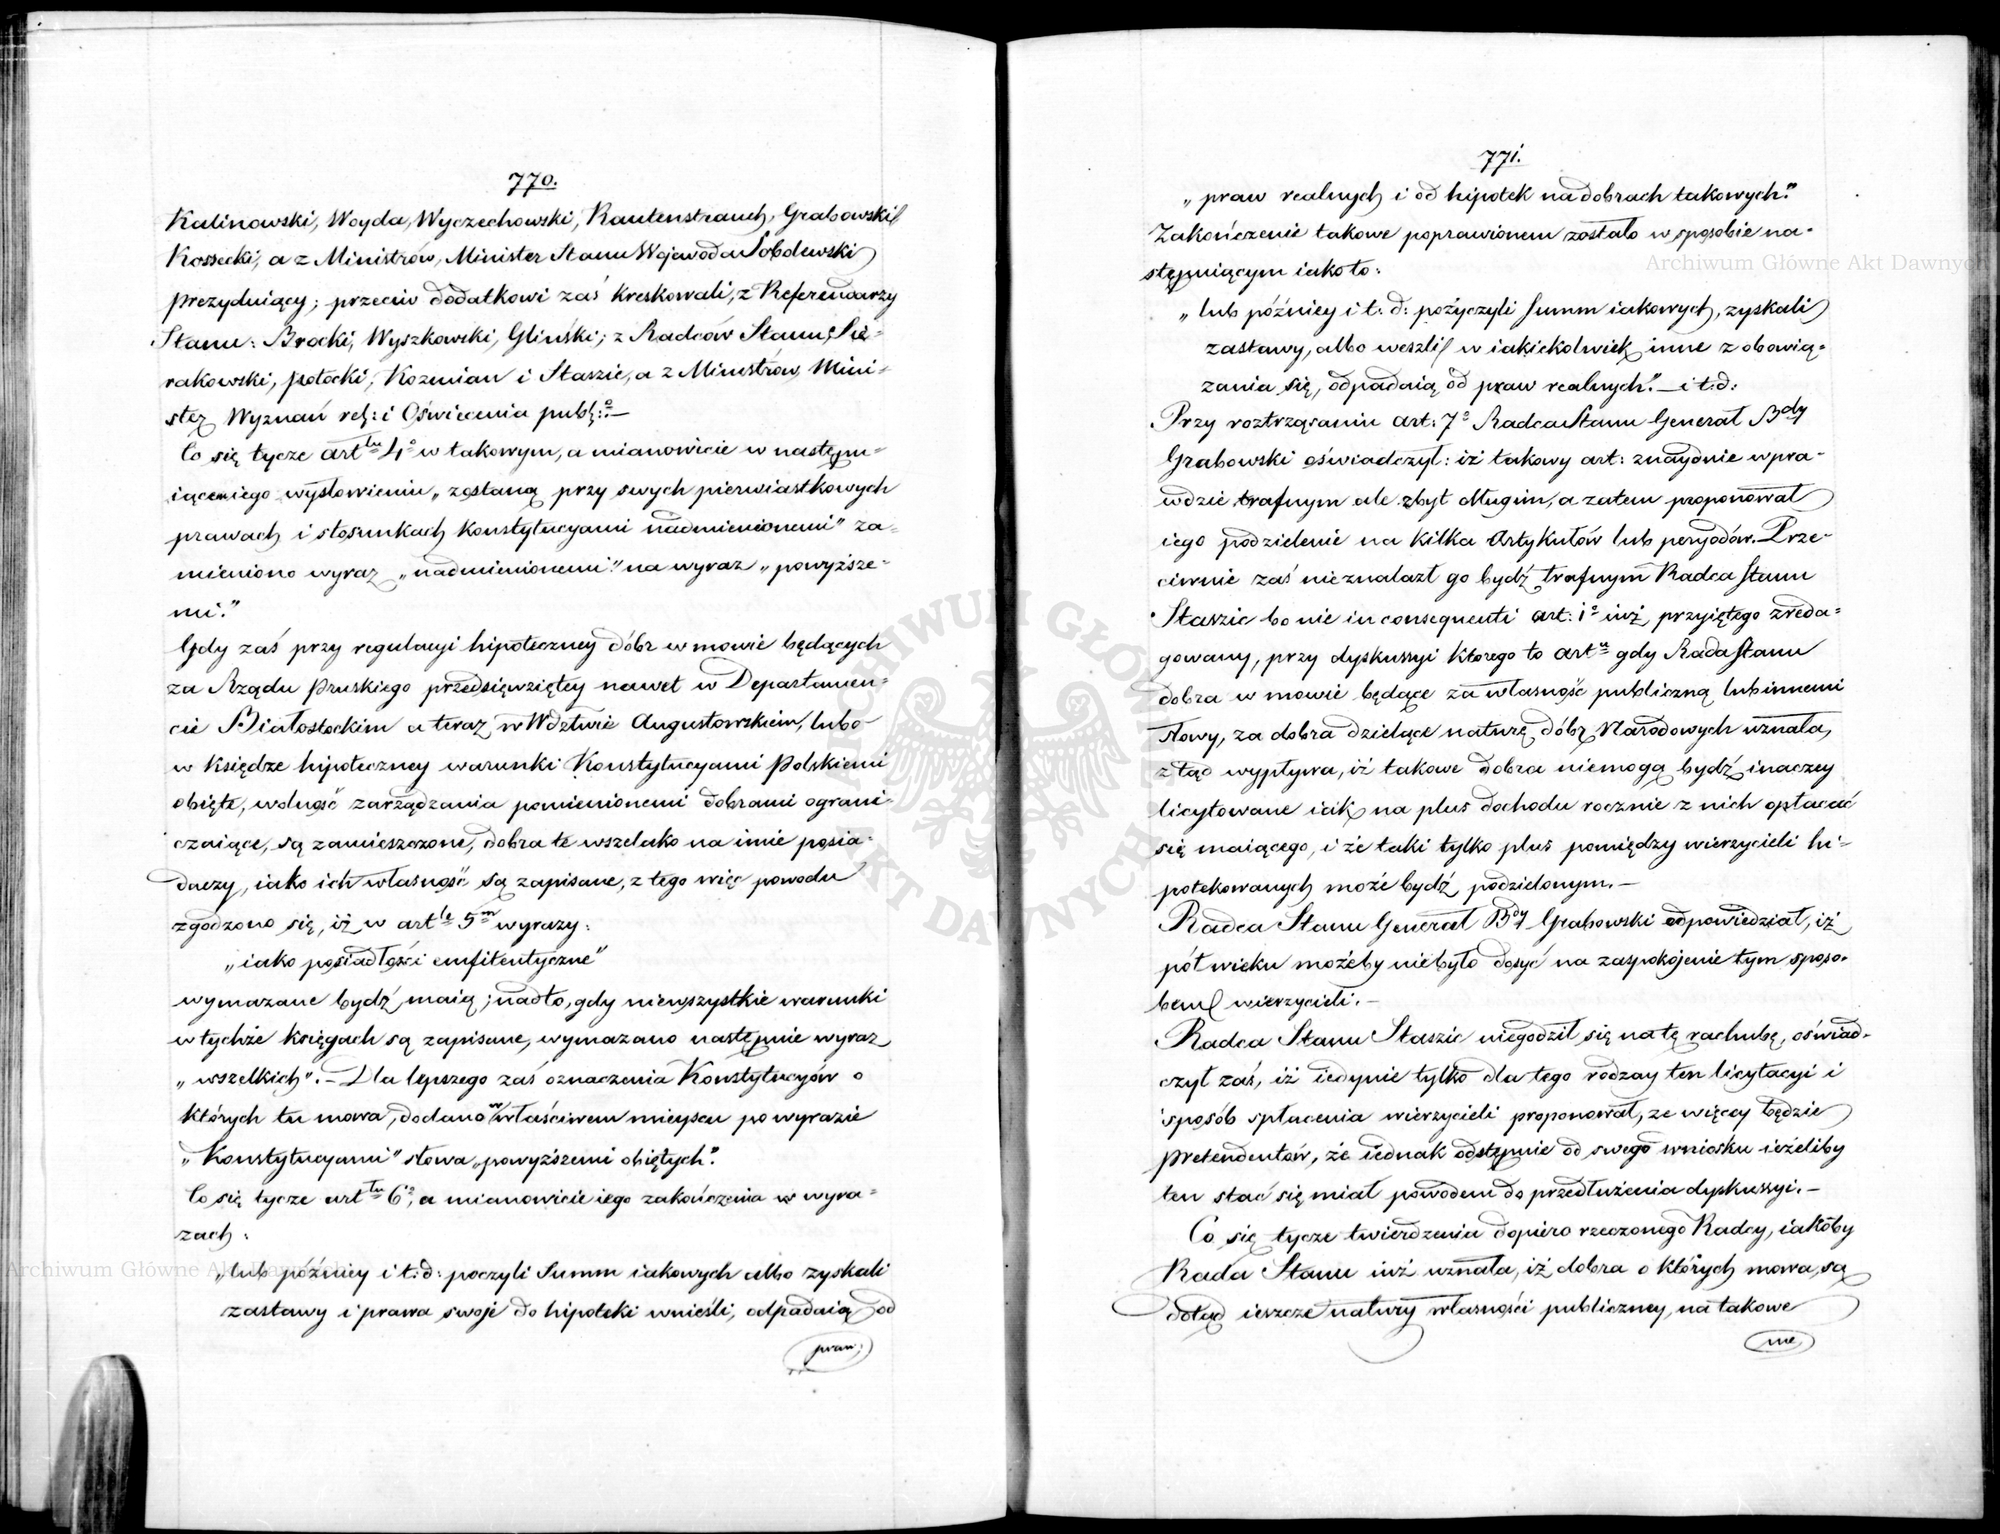 770.
Kalinowski, Woyda, Wyczechowski, Rautenstrauch, Grabowski
Kossecki, a z Ministrów, Minister Stanu Wojewoda Sobolewski
prezyduiący; przeciw dodatkowi zaś kreskowali, z Referendarzy
Stanu: Brocki, Wyszkowski, Gliński; z Radców Stanu, Sie=
rakowski, Potocki, Kozmian i Staszic, a z Ministrów, Mini=
ster Wyznań rel: i Oświecenia publ:º.—
Co się tycze art^lu 4º w takowym, a mianowicie w następu=
iącemiego wysłowieniu „zostaną przy swych pierwiastkowych
prawach i stosunkach Konstytucyami nadmienionemi" za=
mieniono wyraz „nadmienionemi" na wyraz „powyższe=
mi."
Gdy zaś przy regulacyi hipoteczney dóbr w mowie będących
za Rządu Pruskiego przedsięwziętey nawet w Departamen=
cie Białostockim a teraz w Wdztwie Augustowskiem, lubo
w Księdze hipoteczney warunki Konstytucyami Polskiemi
obięte, wolność zarządzania pomienionemi dobrami ograni=
czaiące, są zamieszczone, dobra te wszelako na imie posia=
daczy, iako ich własność są zapisane, z tego więc powodu
zgodzono się, iż w art^le 5^m wyrazy:
„iako posiadłości emfiteutyczne"
wymazane bydź maią; nadto, gdy niewszystkie warunki
w tychże Księgach są zapisane, wymazano następnie wyraz
„wszelkich". — Dla lepszego zaś oznaczenia Konstytucyów o
których tu mowa, dodano w właściwem mieyscu po wyrazie
„Konstytucyami" słowa „powyższemi obiętych".
Co się tycze art^lu 6º, a mianowicie iego zakończenia w wyra=
zach:
„lub późniey i t: d: poczyli Summ iakowych albo zyskali
zastawy i prawa swoje do hipoteki wnieśli, odpadaią od
praw,
771.
„praw realnych i od hipotek na dobrach takowych."
Zakończenie takowe poprawionem zostało w sposobie na=
stępuiącym iako to:
„lub późniey i t: d: pożyczyli Summ iakowych, zyskali
zastawy, albo weszli w iakiekolwiek inne z obowią=
zania się, odpadaią od praw realnych". — i t: d:
Przy roztrząsaniu art: 7º Radca Stanu Generał Bdy
Grabowski oświadczył: iż takowy art: znayduie wpra=
wdzie trafnym ale zbyt długim, a zatem proponował
iego podzielenie na kilka Artykułów lub peryodów. Prze=
ciwnie zaś nieznalazł go bydź trafnym Radca Stanu
Staszic bo nie in consequenti art: 1º iuż przyiętego zreda=
gowany, przy dyskussyi którego to art^u gdy Rada Stanu
dobra w mowie będące za własność publiczną lub innemi
słowy, za dobra dzielące naturę dóbr Narodowych uznała,
ztąd wypływa, iż takowe dobra niemogą bydź inaczey
licytowane iak na plus dochodu rocznie z nich opłacać
się maiącego, i że taki tylko plus pomiędzy wierzycieli hi=
potekowanych może bydź podzielonym. —
Radca Stanu Generał Bdy Grabowski odpowiedział, iż
pół wieku możeby niebyło dosyć na zaspokojenie tym sposo=
bem wierzycieli. —
Radca Stanu Staszic niegodził się na tę rachubę, oświad=
czył zaś, iż iedynie tylko dla tego rodzay ten licytacyi i
sposób spłacenia wierzycieli proponował, ze więcey będzie
pretendentów, że iednak odstępuie od swego wniosku ieżeliby
ten stać się miał powodem do przedłużenia dyskussyi. —
Co się tycze twierdzenia dopiero rzeczonego Radcy, iakoby
Rada Stanu iuż uznała, iż dobra o których mowa, są
dotąd ieszcze natury własności publiczney, na takowe
nie
Archiwum Główne Akt Dawnych
Archiwum Główne Akt Dawnych
ARCHIWUM GŁÓWNE AKT DAWNYCH